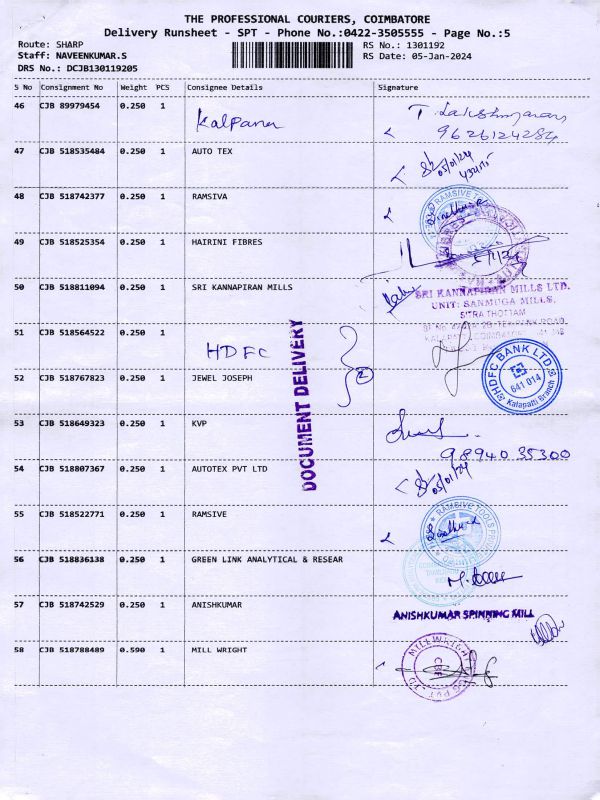 THE PROFESSIONAL COURIERS, COIMBATORE
Delivery Runsheet - SPT - Phone No.:0422-3505555 - Page No.:5
Route: SHARP
Staff: NAVEENKUMAR.S
DRS No.: DCJB130119205
RS No.: 1301192
RS Date: 05-Jan-2024
S No Consignment No Weight PCS Consignee Details Signature
46 CJB 89979454 0.250 1 Kalpana
9626124284
47 CJB 518535484 0.250 1 AUTO TEX
05/01/24
48 CJB 518742377 0.250 1 RAMSIVA
49 CJB 518525354 0.250 1 HAIRINI FIBRES
50 CJB 518811094 0.250 1 SRI KANNAPIRAN MILLS
SRI KANNAPIRAN MILLS LTD.
UNIT: SANMUGA MILLS,
SITRA THOTTAM
51 CJB 518564522 0.250 1 HDFC
DOCUMENT DELIVERY
2
HDFC BANK LTD
641 014
Kalapatti Branch
52 CJB 518767823 0.250 1 JEWEL JOSEPH
53 CJB 518649323 0.250 1 KVP
98940 35300
54 CJB 518807367 0.250 1 AUTOTEX PVT LTD
05/01/24
55 CJB 518522771 0.250 1 RAMSIVE
56 CJB 518836138 0.250 1 GREEN LINK ANALYTICAL & RESEAR
57 CJB 518742529 0.250 1 ANISHKUMAR
ANISHKUMAR SPINNING MILL
58 CJB 518788489 0.590 1 MILL WRIGHT